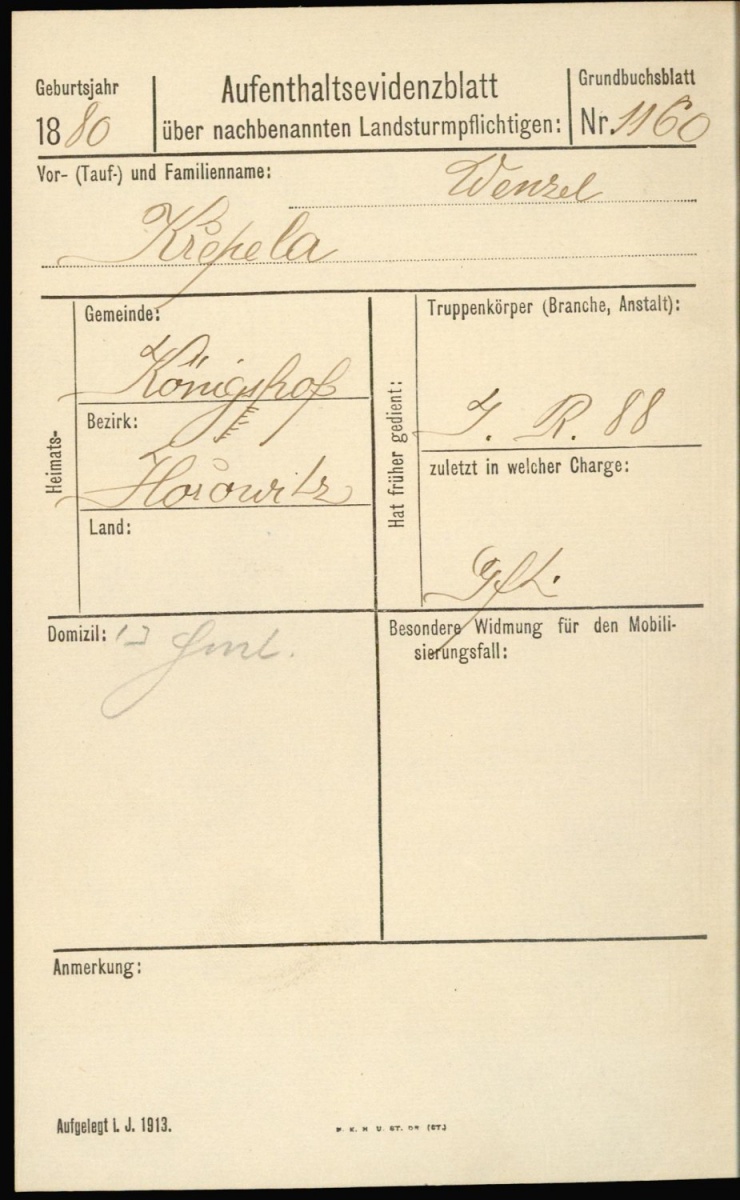 Geburtsjahr
1880
Aufenthaltsevidenzblatt
über nachbenannten Landsturmpflichtigen:
Grundbuchsblatt
Nr. 1160
Vor- (Tauf-) und Familienname:
Wenzel
Křepela
Heimats-
Gemeinde:
Königshof
Bezirk:
Hořowitz
Land:
Hat früher gedient:
Truppenkörper (Branche, Anstalt):
I. R. 88
zuletzt in welcher Charge:
Gft.
Domizil:
Besondere Widmung für den Mobili-
sierungsfall:
Anmerkung:
Aufgelegt i. J. 1913.